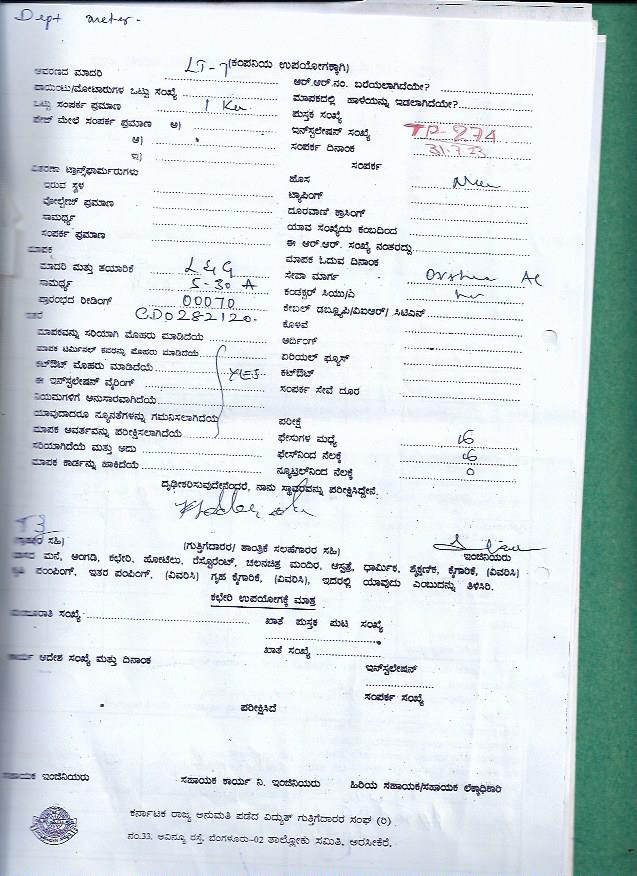 Dept meter -
LT-7 (ಕಂಪನಿಯ ಉಪಯೋಗಕ್ಕಾಗಿ)
ಆವರಣದ ಮಾದರಿ
ಆರ್.ಆರ್.ನಂ. ಬರೆಯಲಾಗಿದೆಯೇ?
ಪಾಯಿಂಟು/ಮೋಟಾರುಗಳ ಒಟ್ಟು ಸಂಖ್ಯೆ
ಮಾಪಕದಲ್ಲಿ ಹಾಳೆಯನ್ನು ಇಡಲಾಗಿದೆಯೇ?
ಒಟ್ಟು ಸಂಪರ್ಕ ಪ್ರಮಾಣ 1 Kw
ಪುಸ್ತಕ ಸಂಖ್ಯೆ
ಫೇಜ್ ಮೇಲೆ ಸಂಪರ್ಕ ಪ್ರಮಾಣ ಅ)
ಇನ್‌ಸ್ಟಲೇಷನ್ ಸಂಖ್ಯೆ TP-274
ಆ)
ಸಂಪರ್ಕ ದಿನಾಂಕ
ಇ)
ಸಂಪರ್ಕ
ವಿತರಣಾ ಟ್ರಾನ್ಸ್‌ಫಾರ್ಮರುಗಳು
ಹೊಸ
ಇರುವ ಸ್ಥಳ
ಟ್ಯಾಪಿಂಗ್
ವೋಲ್ಟೇಜ್ ಪ್ರಮಾಣ
ದೂರವಾಣಿ ಕ್ರಾಸಿಂಗ್
ಸಾಮರ್ಥ್ಯ
ಯಾವ ಸಂಖ್ಯೆಯ ಕಂಬದಿಂದ
ಸಂಪರ್ಕ ಪ್ರಮಾಣ
ಈ ಆರ್.ಆರ್. ಸಂಖ್ಯೆ ನಂತರದ್ದು
ಮಾಪಕ
ಮಾಪಕ ಓದುವ ದಿನಾಂಕ
ಮಾದರಿ ಮತ್ತು ತಯಾರಿಕೆ L & G
ಸೇವಾ ಮಾರ್ಗ
ಸಾಮರ್ಥ್ಯ 5-30 A
ಕಂಡಕ್ಟರ್ ಸಿಯು/ಎ
ಪ್ರಾರಂಭದ ರೀಡಿಂಗ್ 00070
ಕೇಬಲ್ ಡಬ್ಲ್ಯೂಪಿ/ವಿಐಆರ್/ ಸಿಟಿಎಸ್
ಇತರೆ CD0282120.
ಕೊಳವೆ
ಮಾಪಕವನ್ನು ಸರಿಯಾಗಿ ಮೊಹರು ಮಾಡಿದೆಯೆ
ಆರ್ದಿಂಗ್
ಮಾಪಕ ಟರ್ಮಿನಲ್ ಕವರನ್ನು ಮೊಹರು ಮಾಡಿದೆಯೆ
ಏರಿಯಲ್ ಫ್ಯೂಸ್
ಕಟ್‌ಔಟ್ ಮೊಹರು ಮಾಡಿದೆಯೆ
ಕಟ್‌ಔಟ್
ಈ ಇನ್‌ಸ್ಟಲೇಷನ್ ವೈರಿಂಗ್ YES
ಸಂಪರ್ಕ ಸೇವೆ ದೂರ
ನಿಯಮಗಳಿಗೆ ಅನುಸಾರವಾಗಿದೆಯೆ
ಯಾವುದಾದರೂ ನ್ಯೂನತೆಗಳನ್ನು ಗಮನಿಸಲಾಗಿದೆಯೆ
ಪರೀಕ್ಷೆ
ಮಾಪಕ ಆವರ್ತವನ್ನು ಪರೀಕ್ಷಿಸಲಾಗಿದೆಯೆ
ಫೇಸುಗಳ ಮಧ್ಯೆ
ಸರಿಯಾಗಿದೆಯೆ ಮತ್ತು ಅದು
ಫೇಸ್‌ನಿಂದ ನೆಲಕ್ಕೆ
ಮಾಪಕ ಕಾರ್ಡನ್ನು ಹಾಕಿದೆಯೆ
ನ್ಯೂಟ್ರಲ್‌ನಿಂದ ನೆಲಕ್ಕೆ 0
ದೃಢೀಕರಿಸುವುದೇನೆಂದರೆ, ನಾನು ಸ್ಥಾವರವನ್ನು ಪರೀಕ್ಷಿಸಿದ್ದೇನೆ.
(ಗ್ರಾಹಕರ ಸಹಿ) (ಗುತ್ತಿಗೆದಾರರ/ ತಾಂತ್ರಿಕ ಸಲಹೆಗಾರರ ಸಹಿ) ಇಂಜಿನಿಯರು
ವಾಸದ ಮನೆ, ಅಂಗಡಿ, ಕಛೇರಿ, ಹೋಟೆಲು, ರೆಸ್ಟೋರೆಂಟ್, ಚಲನಚಿತ್ರ ಮಂದಿರ, ಆಸ್ಪತ್ರೆ, ಧಾರ್ಮಿಕ, ಶೈಕ್ಷಣಿಕ, ಕೈಗಾರಿಕೆ, (ವಿವರಿಸಿ)
ಕೃಷಿ ಪಂಪಿಂಗ್, ಇತರ ಪಂಪಿಂಗ್, (ವಿವರಿಸಿ) ಗೃಹ ಕೈಗಾರಿಕೆ, (ವಿವರಿಸಿ), ಇದರಲ್ಲಿ ಯಾವುದು ಎಂಬುದನ್ನು ತಿಳಿಸಿರಿ.
ಕಛೇರಿ ಉಪಯೋಗಕ್ಕೆ ಮಾತ್ರ
ಮಂಜೂರಾತಿ ಸಂಖ್ಯೆ
ಖಾತೆ ಪುಸ್ತಕ ಪುಟ ಸಂಖ್ಯೆ
ಖಾತೆ ಸಂಖ್ಯೆ
ಕಾರ್ಯ ಆದೇಶ ಸಂಖ್ಯೆ ಮತ್ತು ದಿನಾಂಕ
ಇನ್‌ಸ್ಟಲೇಷನ್
ಸಂಪರ್ಕ ಸಂಖ್ಯೆ
ಪರೀಕ್ಷಿಸಿದೆ
ಸಹಾಯಕ ಇಂಜಿನಿಯರು ಸಹಾಯಕ ಕಾರ್ಯ ನಿ. ಇಂಜಿನಿಯರು ಹಿರಿಯ ಸಹಾಯಕ/ಸಹಾಯಕ ಲೆಕ್ಕಾಧಿಕಾರಿ
ಕರ್ನಾಟಕ ರಾಜ್ಯ ಅನುಮತಿ ಪಡೆದ ವಿದ್ಯುತ್ ಗುತ್ತಿಗೆದಾರರ ಸಂಘ (ರಿ)
ನಂ.33, ಅವಿನ್ಯೂ ರಸ್ತೆ, ಬೆಂಗಳೂರು-02 ತಾಲ್ಲೋಕು ಸಮಿತಿ, ಅರಸೀಕೆರೆ.